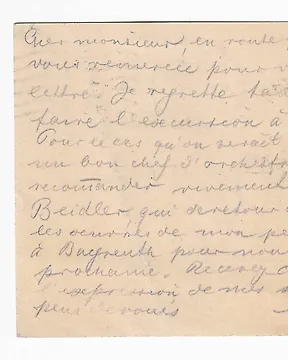 Cher monsieur, en route
vous remercie pour v
lettre. Je regrette
faire l'excursion à
Pour le cas qu'on serait
un bon chef d'orchestr
recomander vivement
Beidler, qui
les oeuvres de mon pè
à Bayreuth pour
prochaine. Recevez
l'expression de nos s